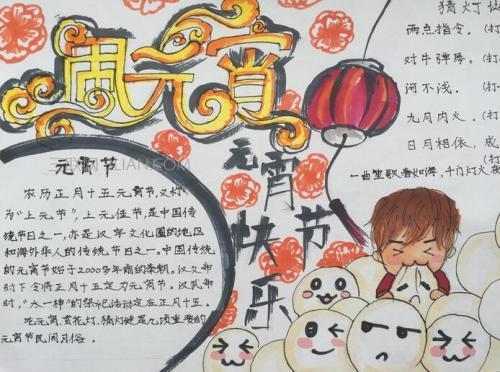 闹元宵
元宵节
快乐
元宵节
农历正月十五元宵节,又称
为“上元节”,上元佳节,是中国传
统节日之一,亦是汉字文化圈的地区
和海外华人的传统节日之一,中国传统
的元宵节始于2000多年前的秦朝。汉文帝
时下令将正月十五定为元宵节。汉武帝
时,“太一神”的祭祀活动定在正月十五。
吃元宵、赏花灯、猜灯谜是几项重要的
元宵节民间习俗。
猜灯
两点指令。(打
对牛弹琴。(打
河不浅。(打
九月内火。(打
日月相依,成
一曲笙歌春如海,千门灯火夜